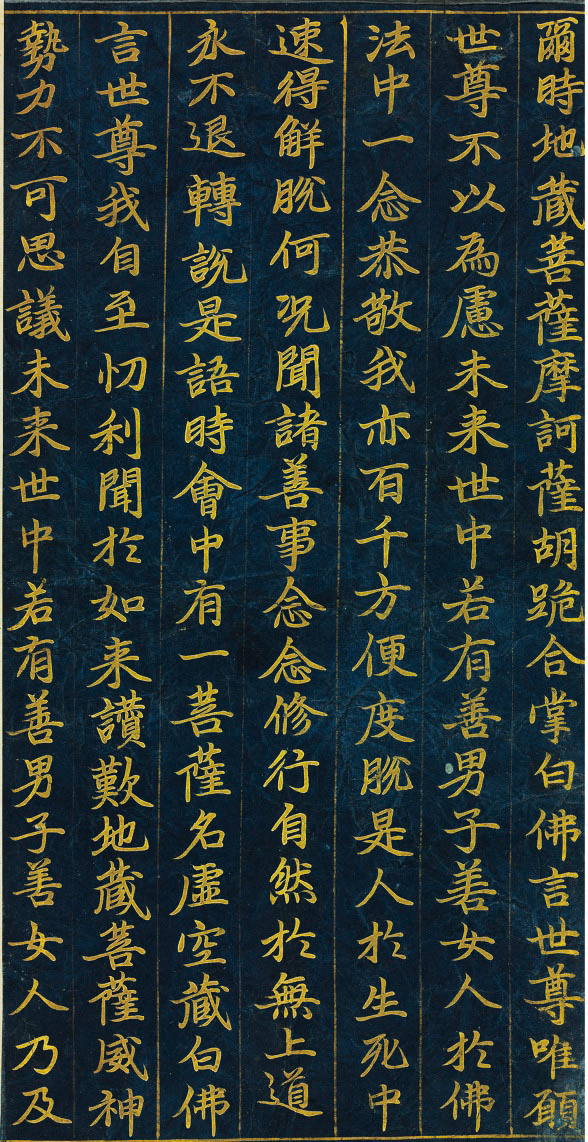 爾時地藏菩薩摩訶薩胡跪合掌白佛言世尊唯願
世尊不以為慮未来世中若有善男子善女人於佛
法中一念恭敬我亦百千方便度脫是人於生死中
速得解脫何况聞諸善事念念修行自然於無上道
永不退轉說是語時會中有一菩薩名虛空藏白佛
言世尊我自至忉利聞於如来讃歎地藏菩薩威神
勢力不可思議未来世中若有善男子善女人乃及